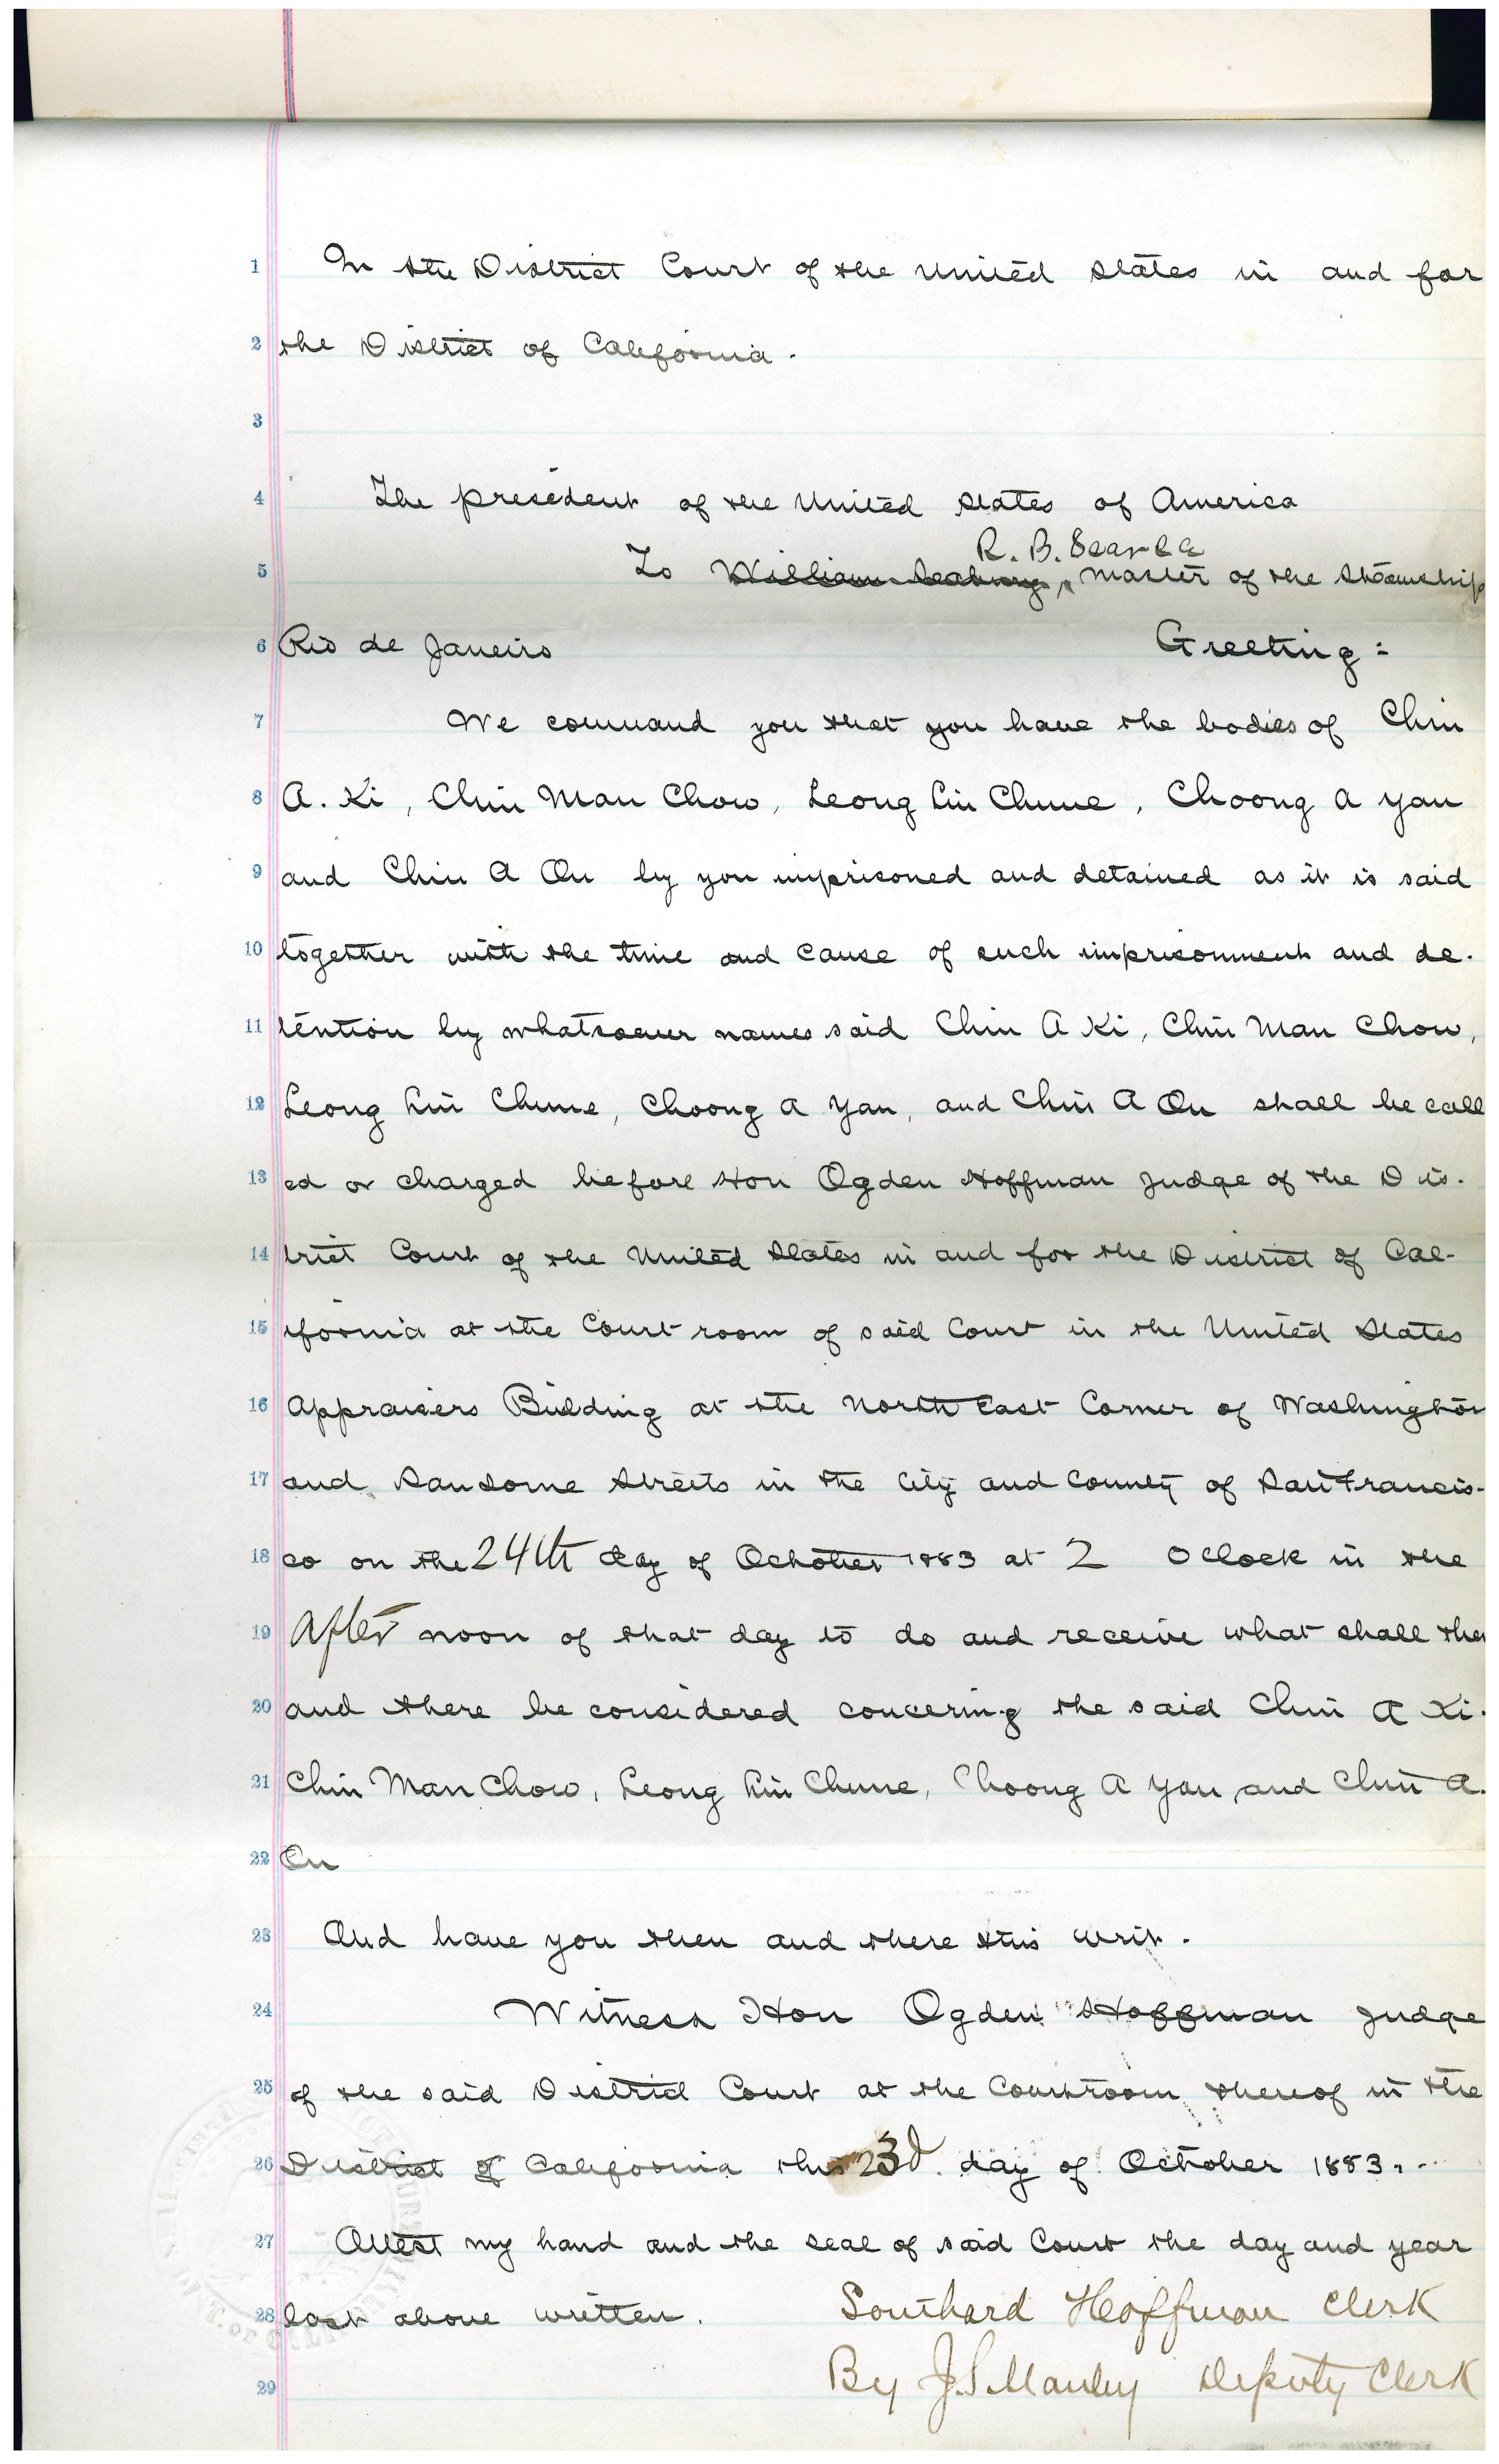 1 In the District Court of the United States in and for
2 the District of California.
3
4 The president of the United States of America
R. B. Searle
5 To William Seabury, master of the Steamship
6 Rio de Janeiro Greeting:
7 We command you that you have the bodies of Chin
8 A. Ki, Chin Man Chow, Leong Lin Chune, Choong A Yan
9 and Chin A On by you imprisoned and detained as it is said
10 together with the time and cause of such imprisonment and de-
11 tention by whatsoever names said Chin A Ki, Chin Man Chow,
12 Leong Lin Chune, Choong A Yan, and Chin A On shall be call
13 ed or charged before Hon Ogden Hoffman Judge of the Dis-
14 trict Court of the United States in and for the District of Cal-
15 ifornia at the Court room of said Court in the United States
16 Appraisers Building at the North East Corner of Washington
17 and Sansome Streets in the City and County of San Francis-
18 co on the 24th day of October 1883 at 2 O Clock in the
19 After noon of that day to do and receive what shall then
20 and there be considered concering the said Chin A Ki.
21 Chin Man Chow, Leong Lin Chune, Choong A Yan and Chin A.
22 On
23 And have you then and there this writ.
24 Witness Hon Ogden Hoffman Judge
25 of the said District Court at the Courtroom thereof in the
26 District of California this 23d. day of October 1883.
27 Attest my hand and the seal of said Court the day and year
28 last above written. Southard Hoffman Clerk
29 By J.S. Manley Deputy Clerk